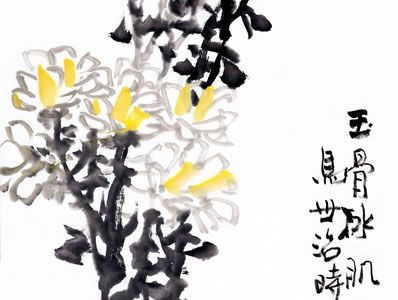 玉骨冰肌
息世治時